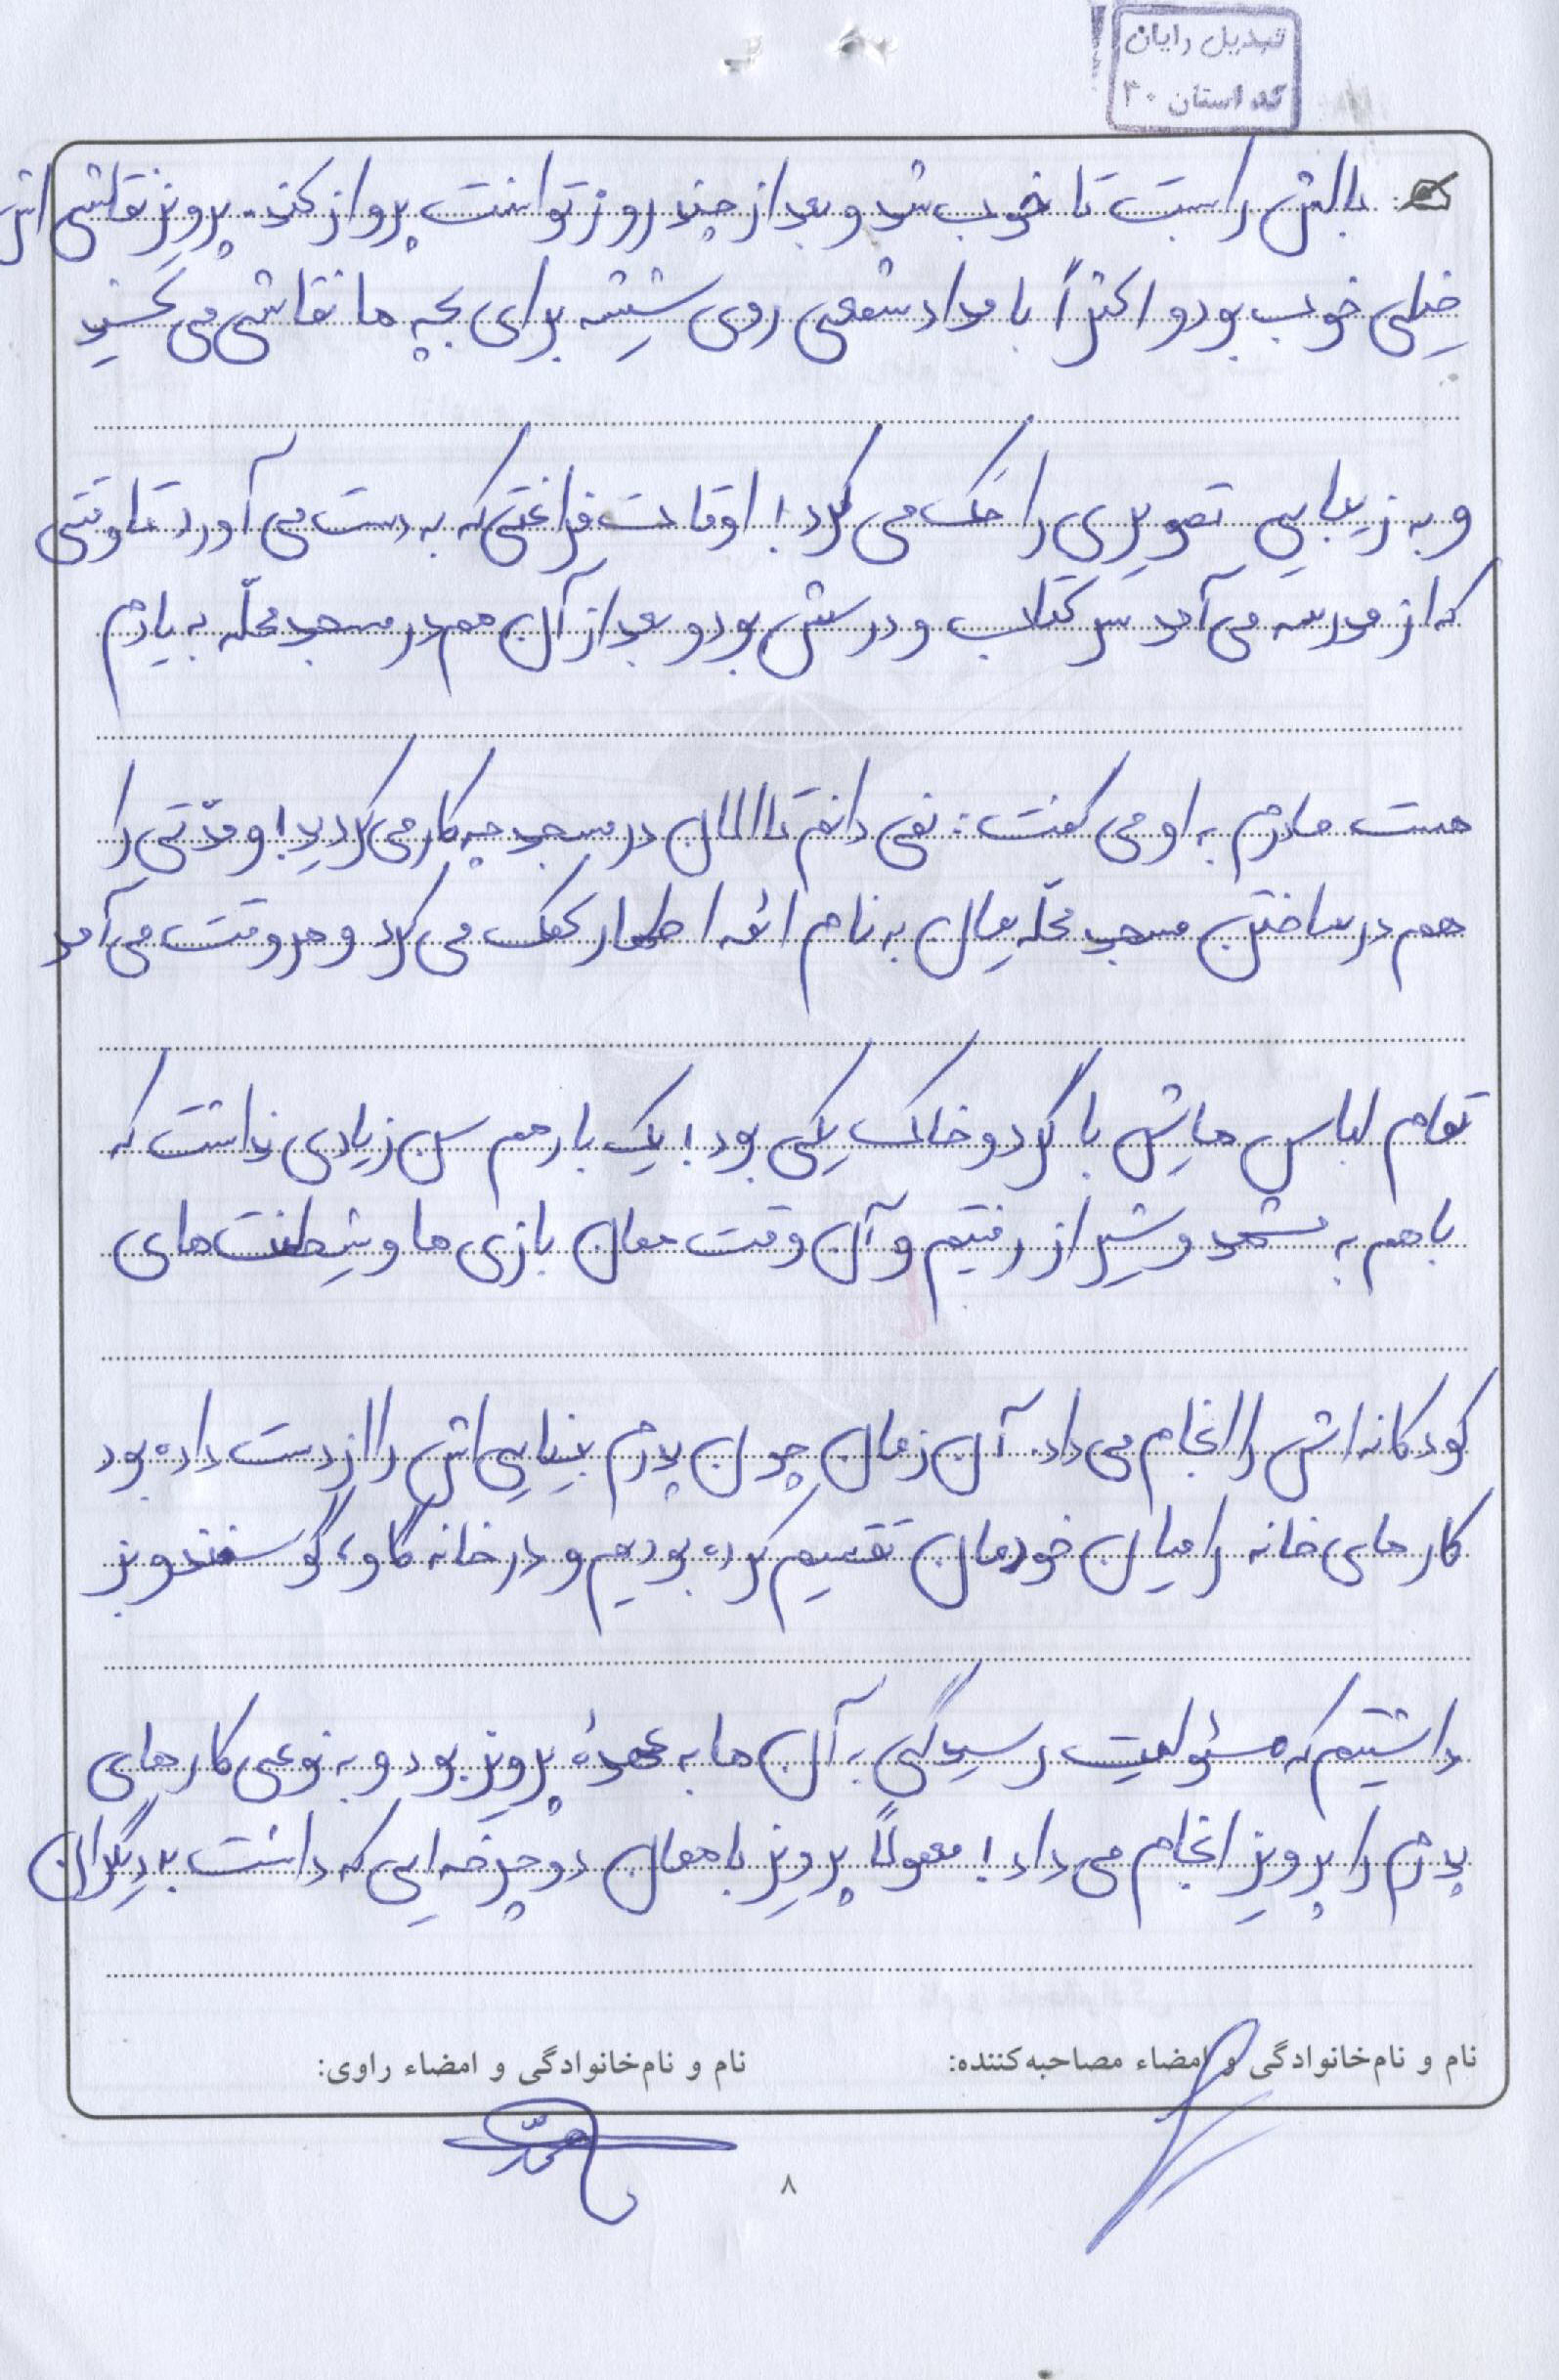 تبدیل رایان
کد استان ۳۰
بالش را بست تا خوب شد و بعد از چند روز توانست پرواز کند. پرویز نقاشی اش
خیلی خوب بود و اکثراً با مداد شمعی روی شیشه برای بچه ها نقاشی می کشید
و به زیبایی تصویری را حک می کرد! اوقات فراغتی که به دست می آورد تا وقتی
که از مدرسه می آمد سر کتاب و درسش بود و بعد از آن هم در مسجد محلّه به یادم
هست مادرم به او می گفت: نمی دانم تا الان در مسجد چه کار می کردید! و مدّتی را
هم در ساختن مسجد محلّه یمان به نام ائمه اطهار کمک می کرد و هر وقت می آمد
تمام لباس هایش با گرد و خاک یکی بود! یک بار هم سن زیادی نداشت که
با هم به مشهد و شیراز رفتیم و آن وقت همان بازی ها و شیطنت های
کودکانه اش را انجام می داد. آن زمان چون پدرم بینایی اش را از دست داده بود
کارهای خانه را میان خودمان تقسیم کرده بودیم و در خانه گاو، گوسفند و بز
داشتیم که مسئولیت رسیدگی به آن ها به عهدهٔ پرویز بود و به نوعی کارهای
پدرم را پرویز انجام می داد! معمولاً پرویز با همان دوچرخه ایی که داشت به دیگران
نام و نام‌خانوادگی و امضاء مصاحبه‌کننده:
نام و نام‌خانوادگی و امضاء راوی:
۸